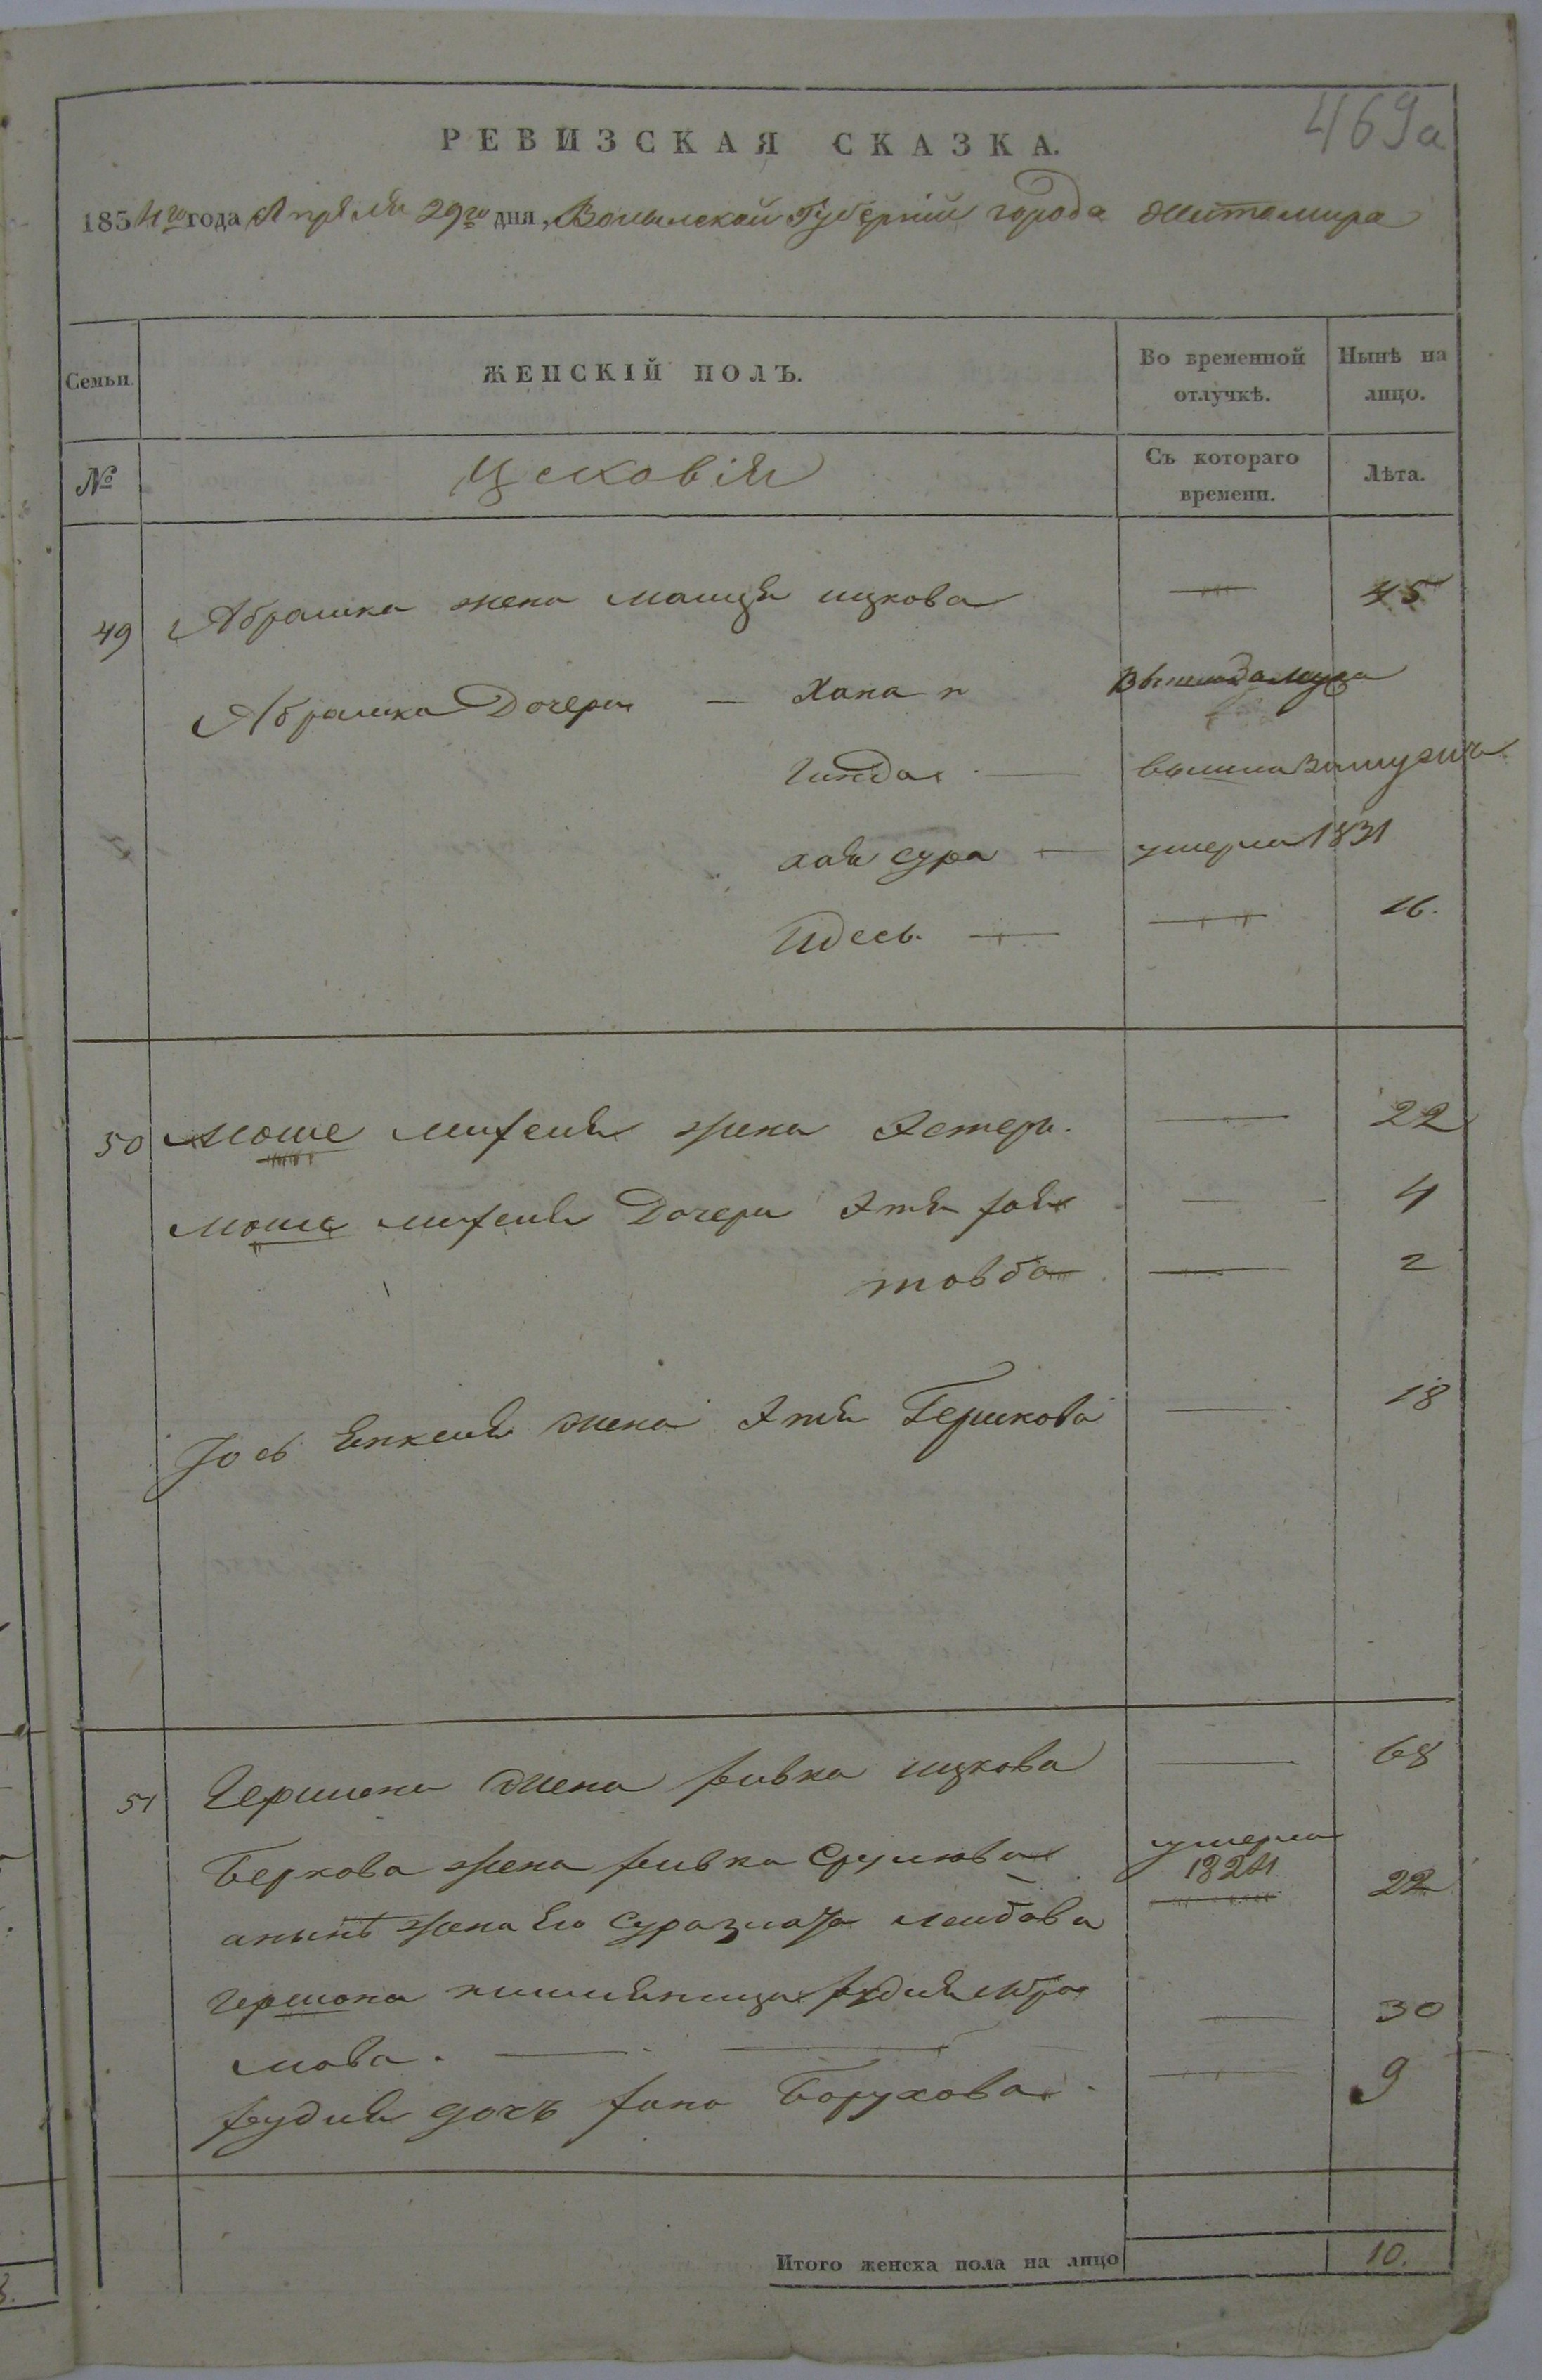 469а
РЕВИЗСКАЯ СКАЗКА.
1834го года Апреля 29го дня, Волынской Губерніи города Житомира
Семьи.
ЖЕНСКІЙ ПОЛЪ.
Во временной отлучкѣ.
Нынѣ на лицо.
№
Съ котораго времени.
Лѣта.
49 Абрамка жена ицкова — 45
Абрамка Дочери — Хана
Гинда — вышла взамуж
хая сура — умерла 1831
Идесь — — 16.
50 Моше жена Эстеръ. — 22
моше Дочери Этя — 4
товба — 2
Іось жена Этя Гершкова — 18
51 Гершона жена ривка ицкова — 68
Беркова жена ривка Срулова умерла
1824
а нынѣ жена Его Сура злата лейбова — 22
гершона племянница — 30
мова. — —
дочь Борухова — 9
Итого женска пола на лицо 10.